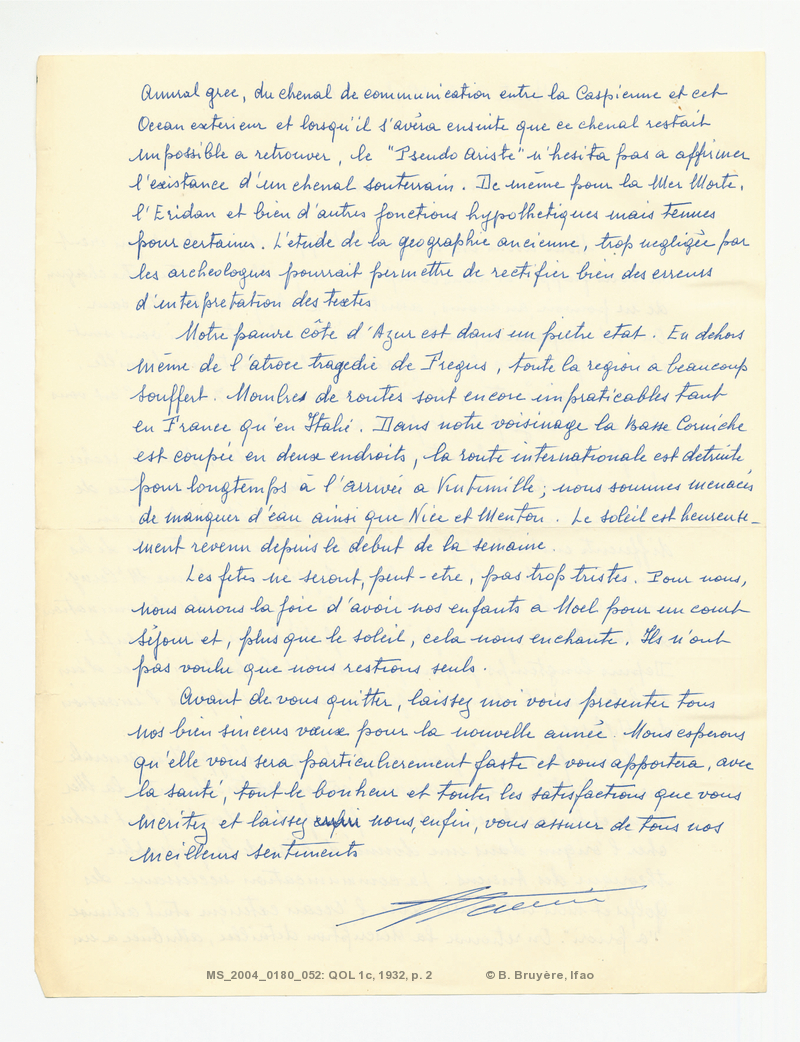 Amiral grec, du chenal de communication entre la Caspienne et cet
Ocean exterieur et lorsqu'il s'avéra ensuite que ce chenal restait
impossible a retrouver, le "Pseudo Ariste" n'hesita pas a affirmer
l'existance d'un chenal souterrain. De même pour la Mer Morte,
l'Eridan et bien d'autres fonctions hypothetiques mais tenues
pour certaines. L'étude de la geographie ancienne, trop negligée par
les archeologues pourrait permettre de rectifier bien des erreurs
d'interpretation des textes
Notre pauvre côte d'Azur est dans un pietre etat. En dehors
même de l'atroce tragedie de Fregus, toute la region a beaucoup
souffert. Nombres de routes sont encore impraticables tant
en France qu'en Italie. Dans notre voisinage la Basse Corniche
est coupée en deux endroits, la route internationale est detruite
pour longtemps à l'arrivée a Vintimille; nous sommes menacés
de manquer d'eau ainsi que Nice et Menton. Le soleil est heureuse-
ment revenu depuis le debut de la semaine.
Les fêtes ne seront, peut-etre, pas trop tristes. Pour nous,
nous aurons la joie d'avoir nos enfants a Noel pour un court
séjour et, plus que le soleil, cela nous enchante. Ils n'ont
pas voulu que nous restions seuls.
Avant de vous quitter, laissez moi vous presenter tous
nos bien sinceres vœux pour la nouvelle année. Nous esperons
qu'elle vous sera particulierement faste et vous apportera, avec
la santé, tout le bonheur et toutes les satisfactions que vous
meritez et laissez enfin nous, enfin, vous assurer de tous nos
meilleurs sentiments
MS_2004_0180_052: QOL 1c, 1932, p. 2 © B. Bruyère, Ifao